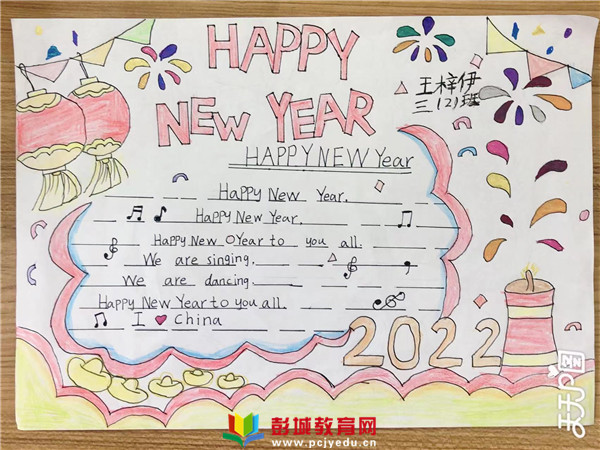 HAPPY
NEW YEAR
王梓伊
三(2)班
HAPPY NEW Year
Happy New Year.
Happy New Year.
Happy New OYear to you all.
We are singing.
We are dancing.
Happy New Year to you all.
I ❤ China
2022
彭城教育网
www.pcjyedu.cn